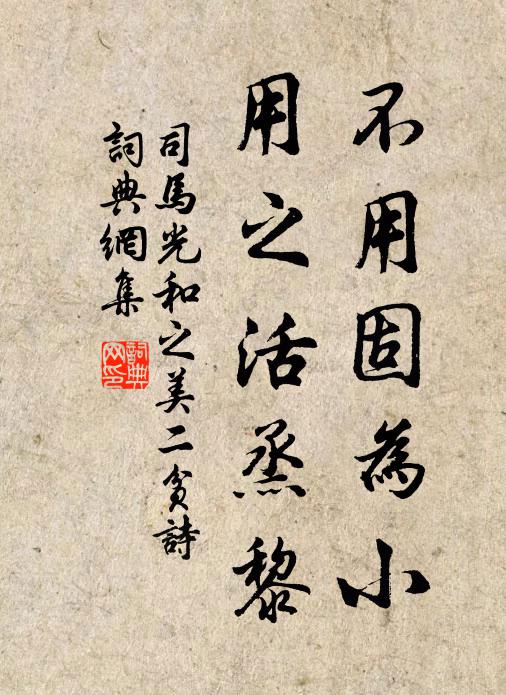 不用固為小
用之活烝黎
司馬光和之美二貧詩
詞典網集
詞典網印